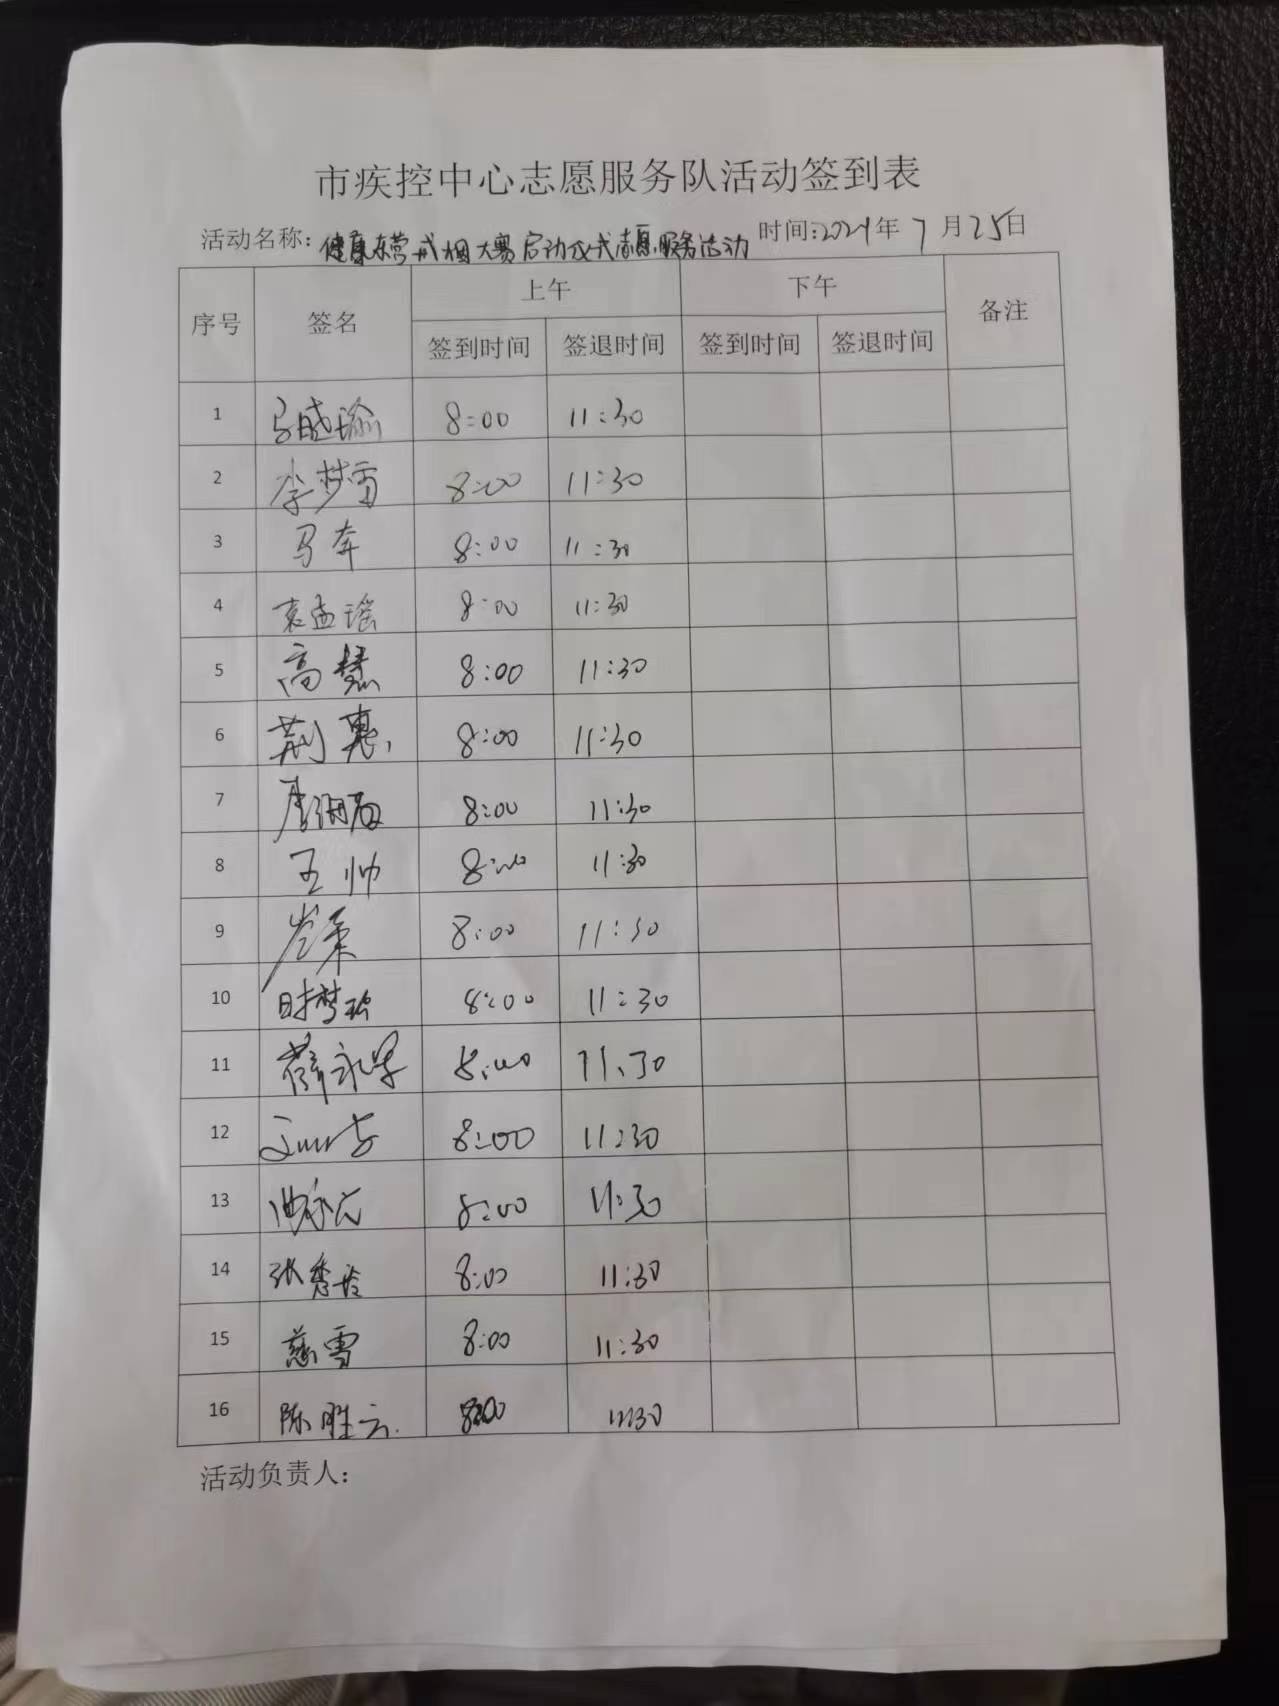 市疾控中心志愿服务队活动签到表
活动名称: 健康东营戒烟大赛启动仪式志愿服务活动 时间:2024年7月25日
序号 签名 上午 下午 备注
签到时间 签退时间 签到时间 签退时间
1 马晓瑜 8:00 11:30
2 李梦雷 8:00 11:30
3 马奔 8:00 11:30
4 袁孟瑶 8:00 11:30
5 高慧 8:00 11:30
6 荆惠 8:00 11:30
7 8:00 11:30
8 王帅 8:00 11:30
9 8:00 11:30
10 时梦 8:00 11:30
11 薛永 8:00 11.30
12 8:00 11:30
13 8:00 11:30
14 张秀玲 8:00 11:30
15 慈雪 8:00 11:30
16 陈胜云 8:00 11:30
活动负责人: